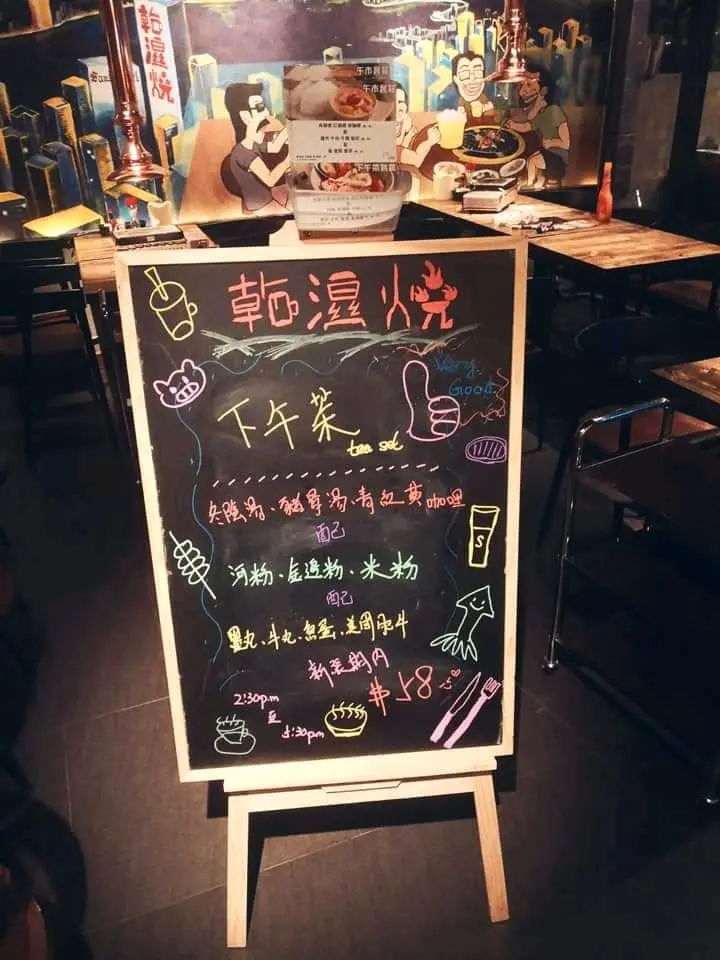 乾濕燒
午市套餐
下午茶套餐
乾濕燒
Very
Good
下午茶
tea set
冬陰湯、豬骨湯、青、黃咖哩
配
河粉、金邊粉、米粉
配
墨丸、牛丸、魚蛋、美國肥牛
新張期內
$58
2:30pm
至
5:30pm
S